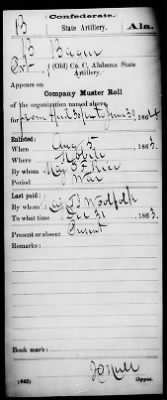 B Confederate. Ala.
State Artillery.
B Bager
(Old) Co. C, Alabama State
Artillery.
Appears on
Company Muster Roll
of the organization named above,
for from April 30 to June 30, 1864
Enlisted:
When Aug 5, 1863
Where Mobile
By whom
Period War
Last paid:
By whom
To what time Dec 31, 1863
Present or absent Present
Remarks:
Book mark:
(642) Copyist.